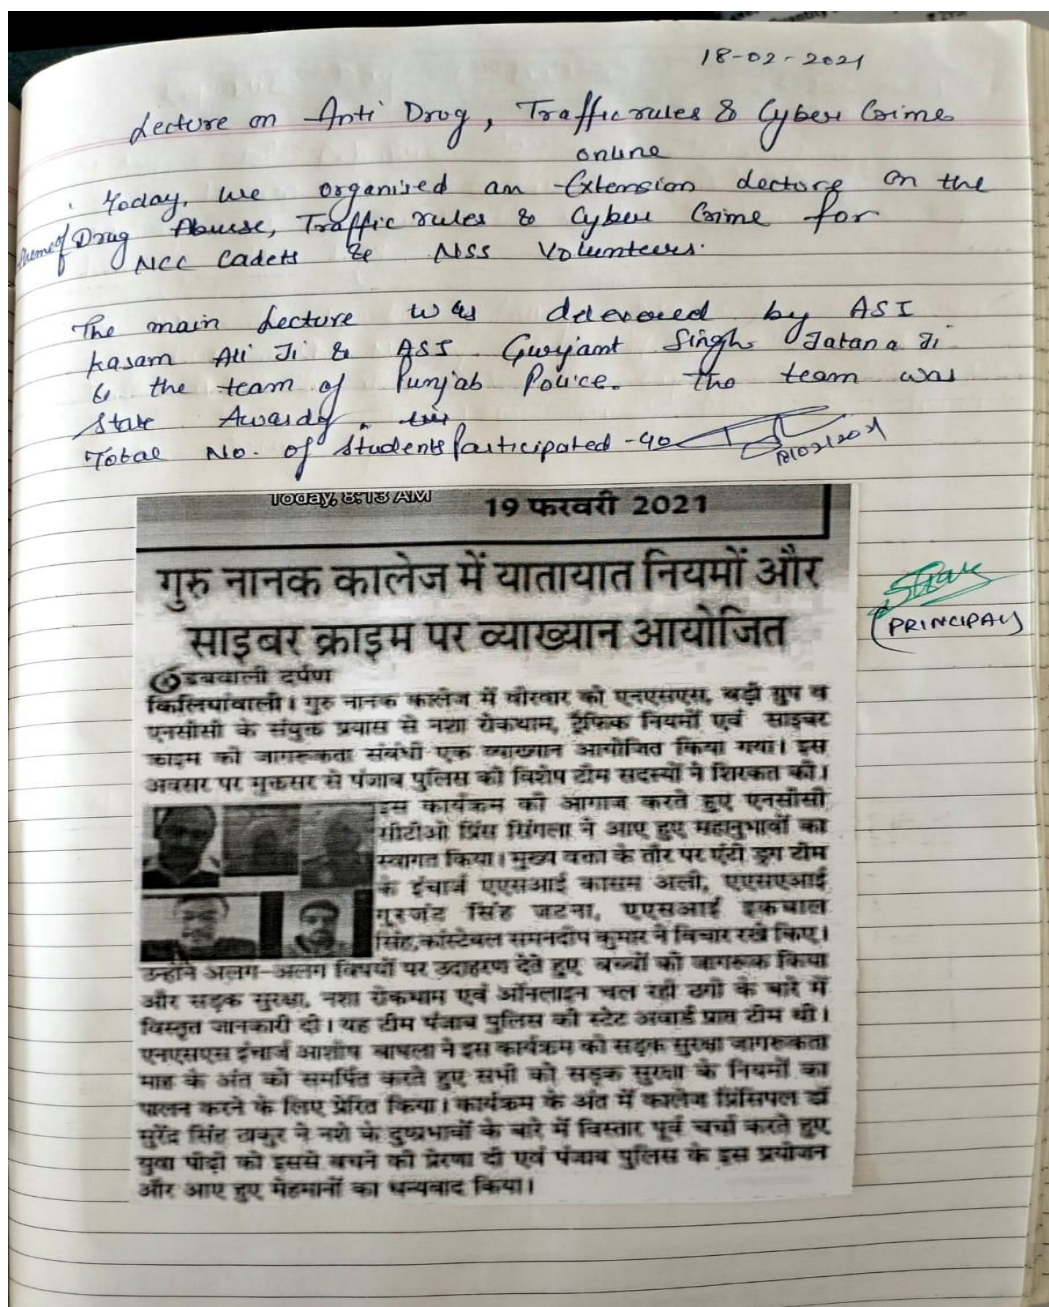 18-02-2021
Lecture on Anti Drug, Traffic rules & Cyber Crime
online
Today, we organised an Extension Lecture on the
theme of Drug Abuse, Traffic rules & Cyber Crime for
NCC Cadets & NSS Volunteers.
The main Lecture was delevered by ASI
Kasam Ali Ji & ASI Gurjant Singh Jatana Ji
& the team of Punjab Police. The team was
State Awardy.
Total No. of Students Participated - 40
18/02/2021
Today, 8:13 AM
19 फरवरी 2021
गुरु नानक कालेज में यातायात नियमों और
साइबर क्राइम पर व्याख्यान आयोजित
डबवाली दर्पण
(PRINCIPAL)
किलियांवाली। गुरु नानक कालेज में वीरवार को एनएसएस, बडी ग्रुप व
एनसीसी के संयुक्त प्रयास से नशा रोकथाम, ट्रैफिक नियमों एवं साइबर
क्राइम को जागरूकता संबंधी एक व्याख्यान आयोजित किया गया। इस
अवसर पर मुक्तसर से पंजाब पुलिस की विशेष टीम सदस्यों ने शिरकत की।
इस कार्यक्रम की आगाज करते हुए एनसीसी
सीटीओ प्रिंस सिंगला ने आए हुए महानुभावों का
स्वागत किया। मुख्य वक्ता के तौर पर एंटी ड्रग टीम
के इंचार्ज एएसआई कासम अली, एएसएआई
गुरजंट सिंह जटना, एएसआई इकबाल
सिंह,कांस्टेबल समनदीप कुमार ने विचार रखे किए।
उन्होंने अलग-अलग विषयों पर उदाहरण देते हुए बच्चों को जागरूक किया
और सड़क सुरक्षा, नशा रोकथाम एवं ऑनलाइन चल रही ठगी के बारे में
विस्तृत जानकारी दी। यह टीम पंजाब पुलिस की स्टेट अवार्ड प्राप्त टीम थी।
एनएसएस इंचार्ज आशीष बाघला ने इस कार्यक्रम को सड़क सुरक्षा जागरूकता
माह के अंत को समर्पित करते हुए सभी को सड़क सुरक्षा के नियमों का
पालन करने के लिए प्रेरित किया। कार्यक्रम के अंत में कालेज प्रिंसिपल डॉ
सुरेंद्र सिंह ठाकुर ने नशे के दुष्प्रभावों के बारे में विस्तार पूर्व चर्चा करते हुए
युवा पीढ़ी को इससे बचने की प्रेरणा दी एवं पंजाब पुलिस के इस प्रयोजन
और आए हुए मेहमानों का धन्यवाद किया।